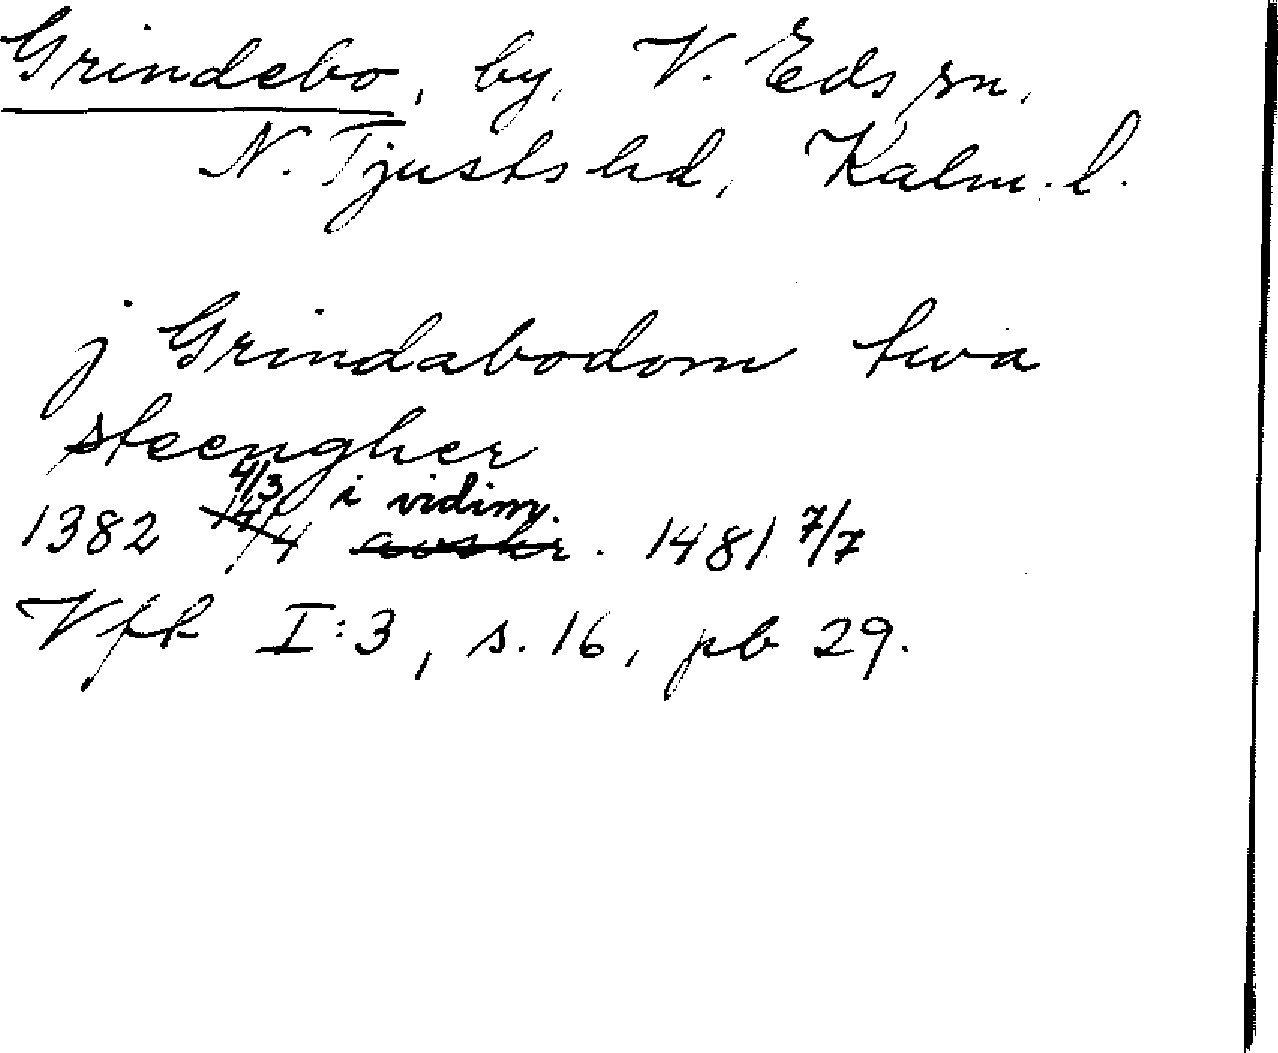 Grindebo, by, V. Eds sn,
N. Tjusts hd, Kalm. l.
j Grindabodom twa
steengher
1382 4/3 i vidim. 1481 7/7
Vfk I:3, s. 16, pb 29.